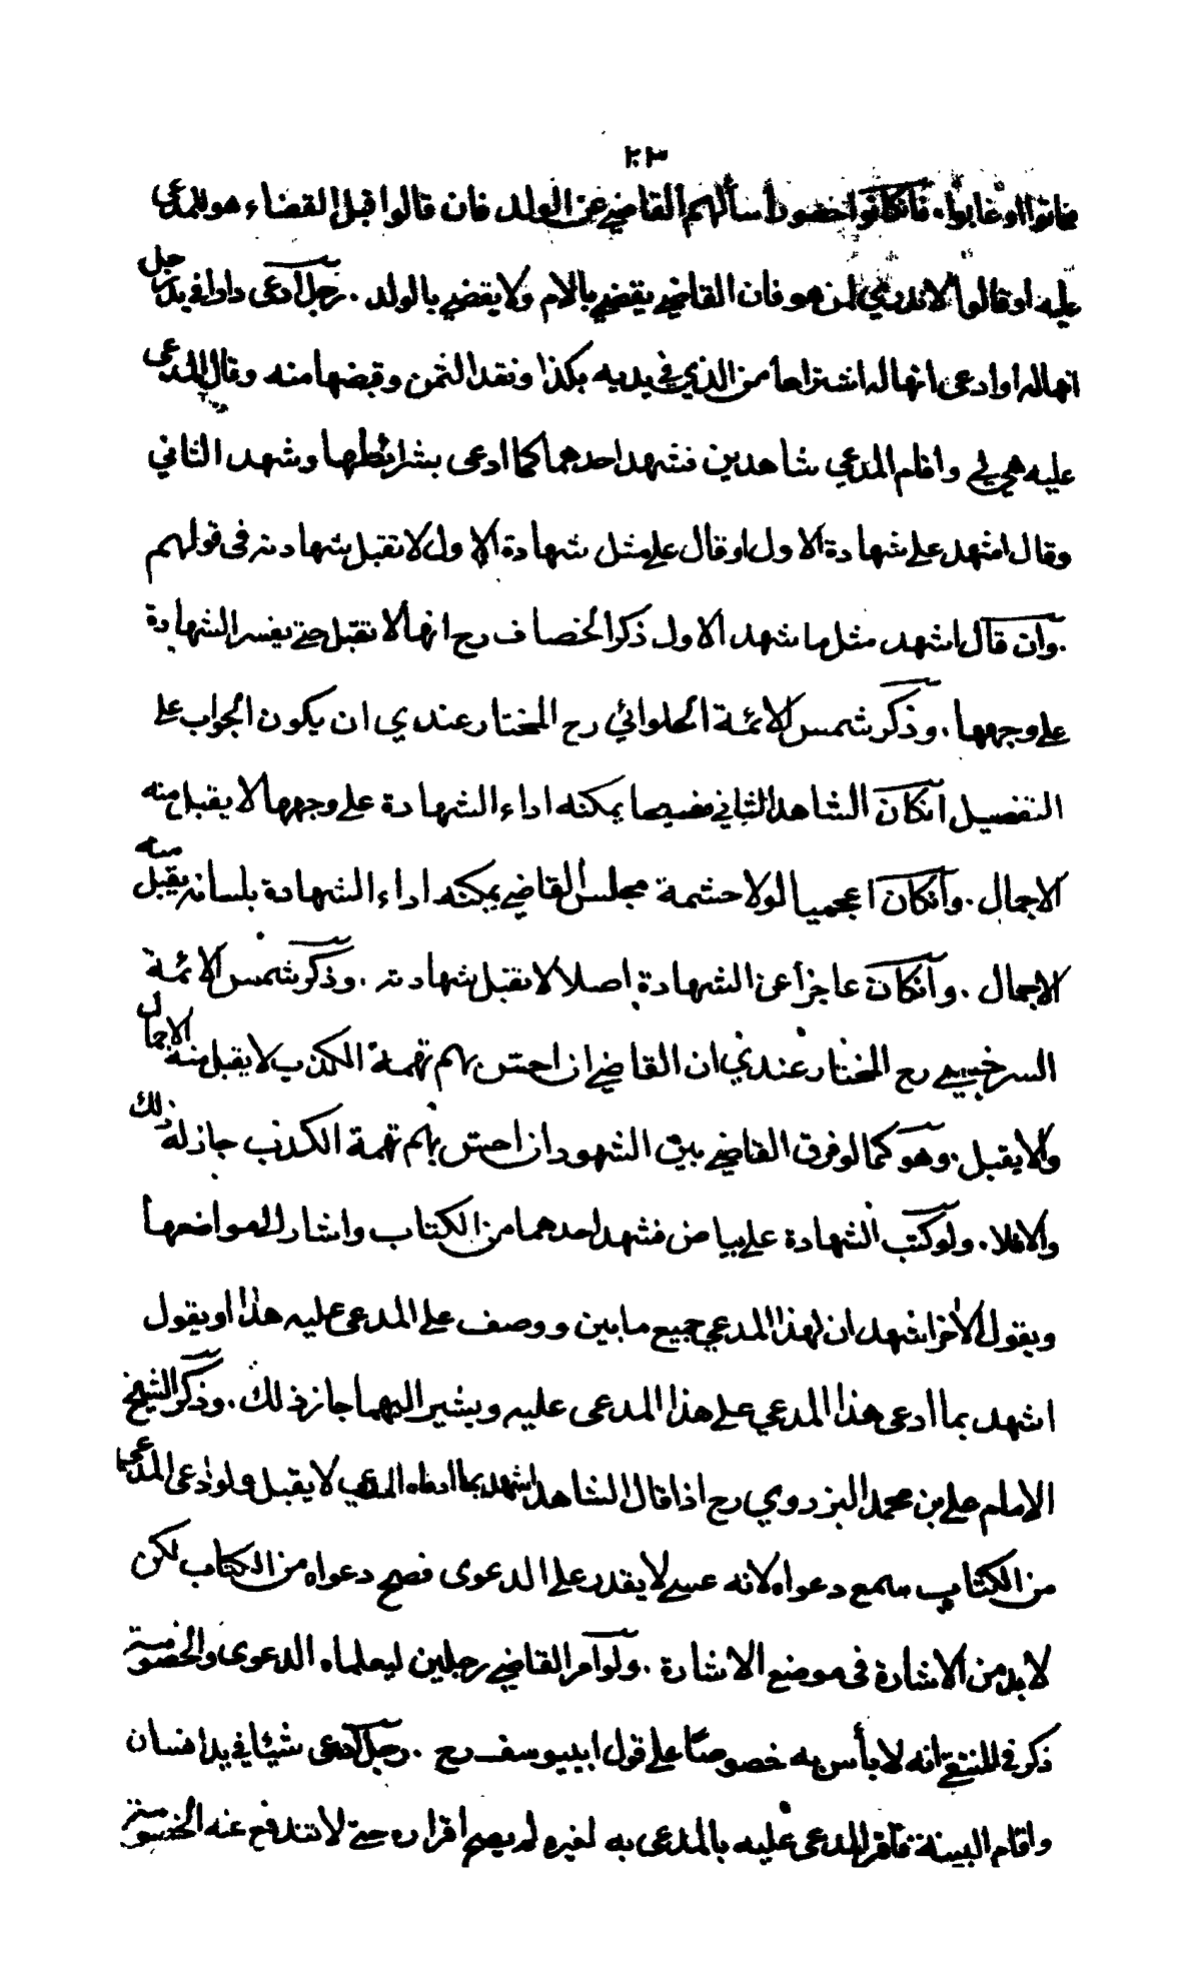 ٢٠٣
ماتوا اوغابوا. فانكانوا حضورا سألهم القاضي عن الولد فان قالوا قبل القضاء هو للمدعى
عليه او قالوا لاندري لمن هو فان القاضي يقضي بالام ولا يقضي بالولد . رجل ادعى دارا في يد رجل
انها له او ادعى انها له اشتراها من الذي في يديه بكذا ونقد الثمن وقبضها منه وقال المدعى
عليه هي لي واقام المدعي شاهدين فشهد احدهما كما ادعى بشرائطها وشهد الثاني
وقال اشهد على شهادة الاول او قال على مثل شهادة الاول لا تقبل شهادته في قولهم
. وان قال اشهد مثل ما شهد الاول ذكر الخصاف رح انها لا تقبل حتى يفسر الشهادة
على وجهها . وذكر شمس الائمة الحلوائي رح المختار عندي ان يكون الجواب على
التفصيل انكان الشاهد الثاني فصيحا يمكنه اداء الشهادة على وجهها لا يقبل منه
الاجمال . وانكان اعجميا لولا حشمة مجلس القاضي يمكنه اداء الشهادة بلسانه يقبل منه
الاجمال . وانكان عاجزا عن الشهادة اصلا لا تقبل شهادته . وذكر شمس الائمة
السرخسي رح المختار عندي ان القاضي ان احس بهم تهمة الكذب لا يقبل منه الاجمال
والا يقبل . وهو كما لو فرق القاضي بين الشهود ان احس بهم تهمة الكذب جاز له ذلك
والا فلا . ولو كتب الشهادة على بياض فشهد احدهما من الكتاب واشار الى مواضعها
ويقول الاخر اشهد ان لهذا المدعي جميع ما بين ووصف على المدعى عليه هذا او يقول
اشهد بما ادعى هذا المدعي على هذا المدعى عليه ويشير اليهما جاز ذلك . وذكر الشيخ
الامام علي بن محمد البزدوي رح اذا قال الشاهد اشهد بما ادعاه المدعي لا يقبل ولو ادعى المدعي
من الكتاب سمع دعواه لانه عسى لا يقدر على الدعوى فصح دعواه من الكتاب لكن
لا بد من الاشارة في موضع الاشارة . ولو امر القاضي رجلين ليعلماه الدعوى والخصومة
ذكر في المنتقى انه لا بأس به خصوصا على قول ابييوسف رح . رجل ادعى شيئا في يد انسان
واقام البينة فاقر المدعى عليه بالمدعى به لغيره لم يصح اقراره حتى لا تندفع عنه الخصومة